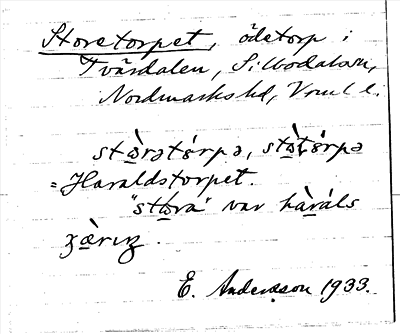 Storetorpet, ödetorp i
Tvärdalen, Silbodalssn,
Nordmarks hd, Vrml l.
stɷ̀rətɞ́rpə, stɷ̀tɞ́rpə
= Haraldstorpet.
"stɷra" var hàráls
kæ̀rıŋ.
E. Andersson 1933.